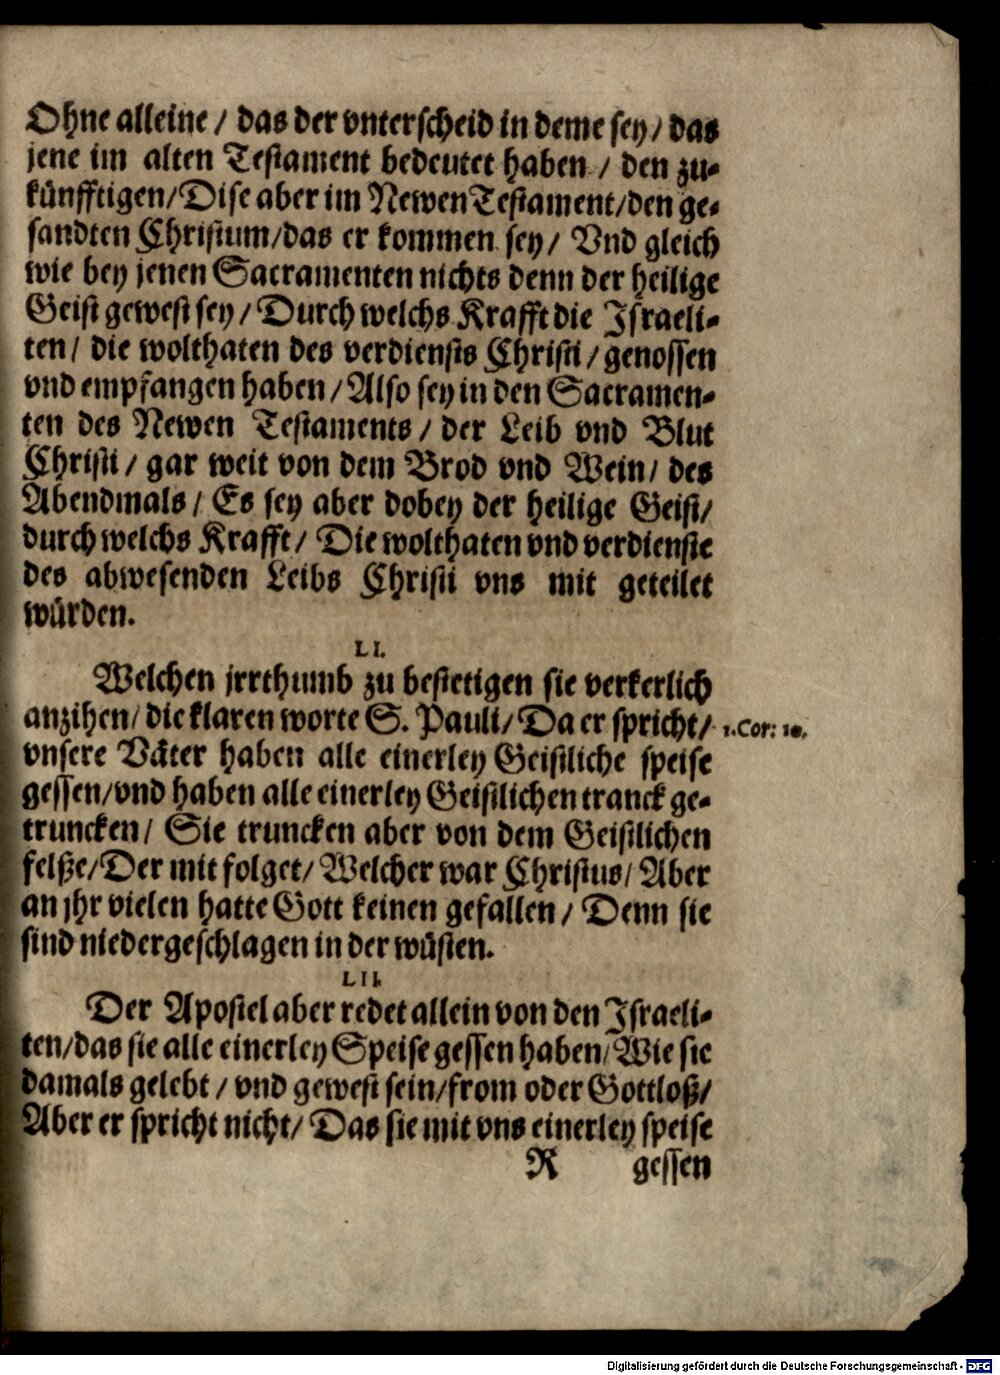 Ohne alleine / das der vnterscheid in deme sey / das
jene im alten Testament bedeutet haben / den zu-
künfftigen / Dise aber im Newen Testament / den ge-
sandten Christum / das er kommen sey / Vnd gleich
wie bey jenen Sacramenten nichts denn der heilige
Geist gewest sey / Durch welchs Krafft die Israeli-
ten / die wolthaten des verdiensts Christi / genossen
vnd empfangen haben / Also sey in den Sacramen-
ten des Newen Testaments / der Leib vnd Blut
Christi / gar weit von dem Brod vnd Wein / des
Abendmals / Es sey aber dobey der heilige Geist /
durch welchs Krafft / Die wolthaten vnd verdienste
des abwesenden Leibs Christi vns mit geteilet
würden.
LI.
Welchen jrrthumb zu bestetigen sie verkerlich
anzihen / die klaren worte S. Pauli / Da er spricht / 1. Cor: 10.
vnsere Väter haben alle einerley Geistliche speise
gessen / vnd haben alle einerley Geistlichen tranck ge-
truncken / Sie truncken aber von dem Geistlichen
felße / Der mit folget / Welcher war Christus / Aber
an jhr vielen hatte Gott keinen gefallen / Denn sie
sind niedergeschlagen in der wüsten.
LII.
Der Apostel aber redet allein von den Israeli-
ten / das sie alle einerley Speise gessen haben / Wie sie
damals gelebt / vnd gewest sein / from oder Gottloß /
Aber er spricht nicht / Das sie mit vns einerley speise
R gessen
Digitalisierung gefördert durch die Deutsche Forschungsgemeinschaft - DFG